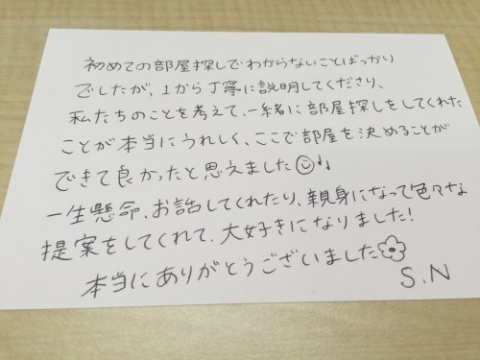 初めての部屋探しでわからないことばっかり
でしたが、1から丁寧に説明してくださり、
私たちのことを考えて、一緒に部屋探しをしてくれた
ことが本当にうれしく、ここで部屋を決めることが
できて良かったと思えました☺♩
一生懸命、お話してくれたり、親身になって色々な
提案をしてくれて、大好きになりました!
本当にありがとうございました
S.N